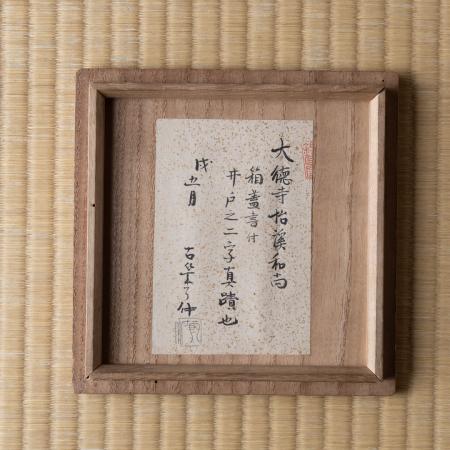 大徳寺怡溪和尚
箱蓋書付
井戸之二字真蹟也
戌五月
古筆了仲